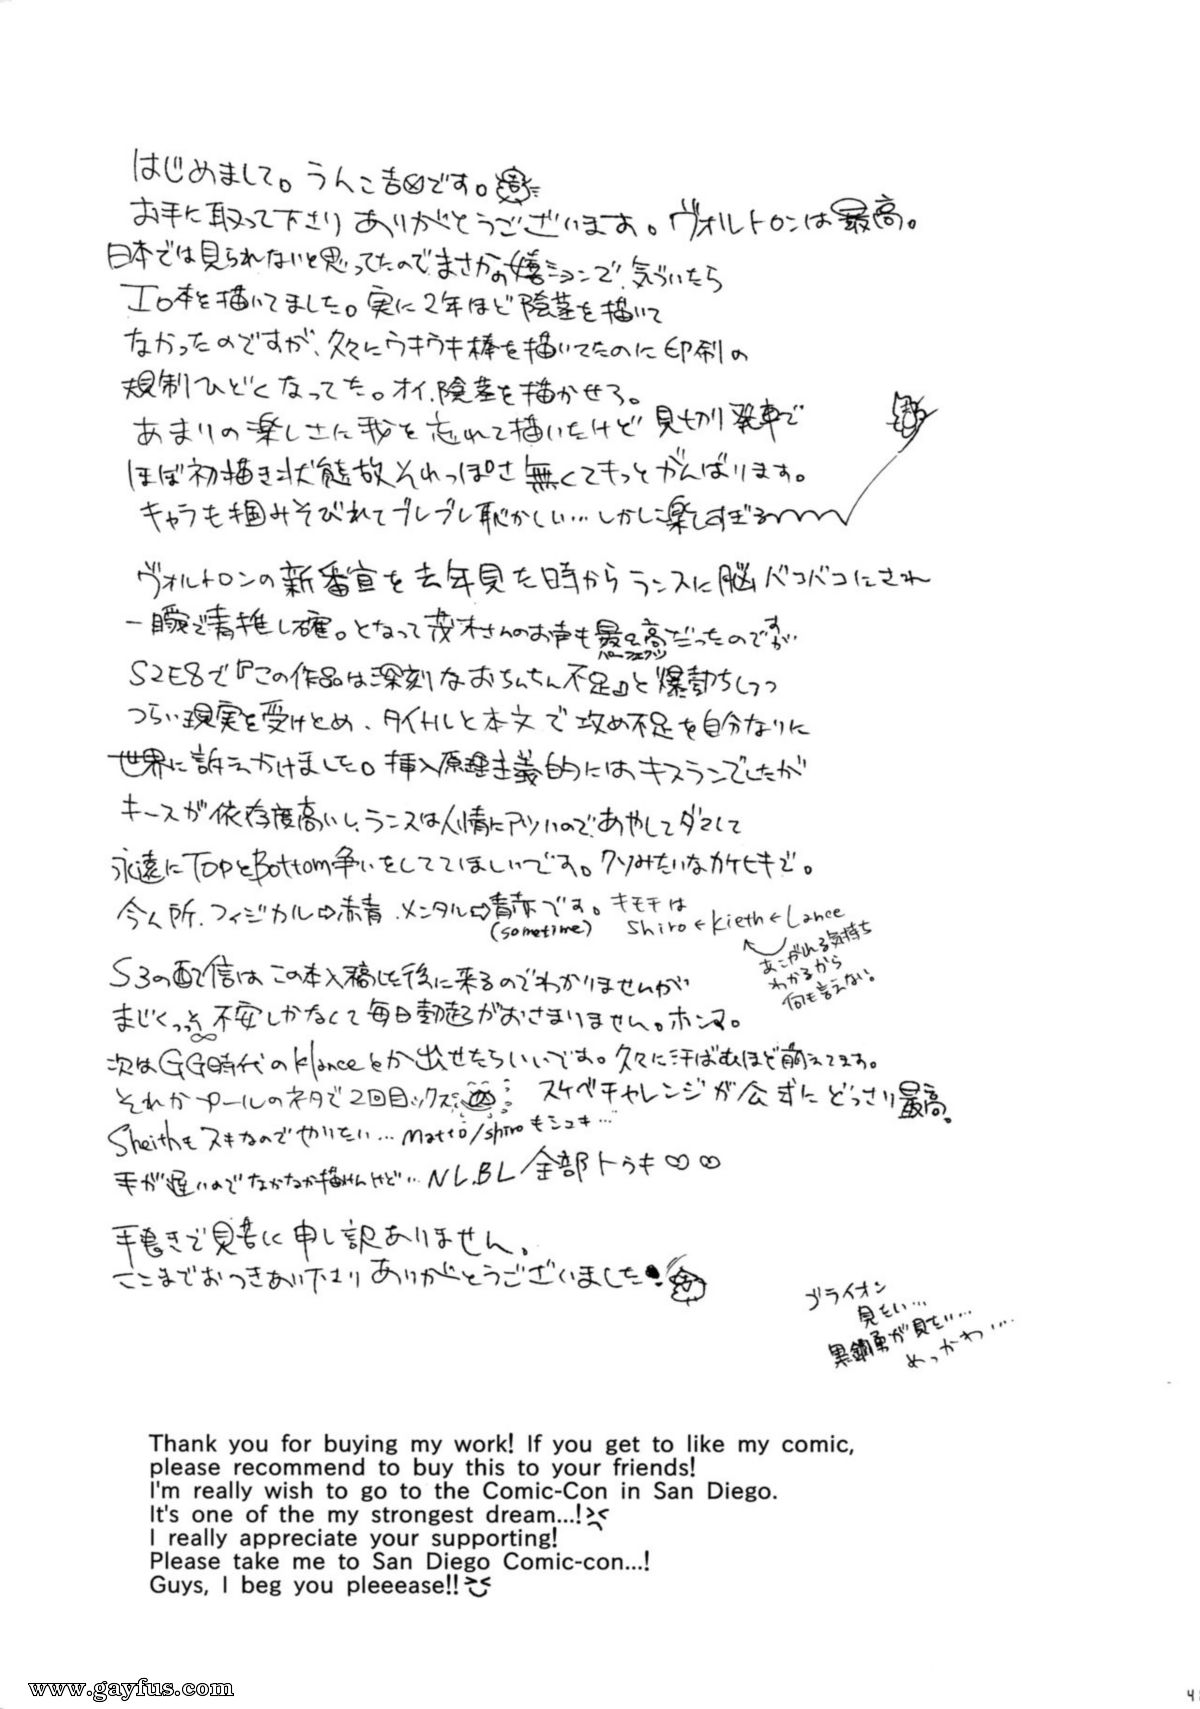 はじめまして。うんこ吉⊗です。
お手に取って下さりありがとうございます。ヴォルトロンは最高。
日本では見られないと思ってたのでまさかの嬉ションで、気づいたら
エロ本を描いてました。実に2年ほど陰茎を描いて
なかったのですが、久々にウキウキ棒を描いてたのに印刷の
規制ひどくなってた。オイ、陰茎を描かせろ。
あまりの楽しさに我を忘れて描いたけど見切り発車で
ほぼ初描き状態故それっぽさ無くてもっとがんばります。
キャラも掴みそびれてブレブレ恥かしい…しかし楽しすぎる
ヴォルトロンの新番宣を去年見た時からランスに脳バコバコにされ
一瞬で青推し確。となって茂木さんのお声も最&高だったのですが
パーフェクツ
S2E8で『この作品は深刻なおちんちん不足』と爆勃ちしつつ
つらい現実を受けとめ、タイトルと本文で攻め不足を自分なりに
世界に訴えかけました。挿入原理主義的にはキスランでしたが
キースが依存度高いし、ランスは人情にアツいので、あやしてダマして
永遠にTopとBottom争いをしててほしいです。クソみたいなカケヒキで。
今ん所、フィジカル⇨赤青、メンタル⇨青赤です。キモチは
(sometime)
Shiro←Kieth←Lance
あこがれる気持ち
わかるから
何も言えない。
S3の配信はこの本入稿した後に来るのでわかりませんが
まじくっっそ不安しかなくて毎日勃起がおさまりません。ホンマ。
次はGG時代のklanceとか出せたらいいです。久々に汗ばむほど萌えてます。
それかプールのネタで2回目ックス スケベチャレンジが公式にどっさり最高。
Sheithもスキなのでやりたい…matto/shiroもシュキ…
手が遅いのでなかなか描けんけど…NL.BL/全部トゥキ♡♡
手書きで見苦しく申し訳ありません。
ここまでおつきあい下さりありがとうございました
ゴライオン
見たい…
黒鋼勇が見たい…
めっかわ…
Thank you for buying my work! If you get to like my comic,
please recommend to buy this to your friends!
I'm really wish to go to the Comic-Con in San Diego.
It's one of the my strongest dream...!
I really appreciate your supporting!
Please take me to San Diego Comic-con...!
Guys, I beg you pleeease!!
www.gayfus.com